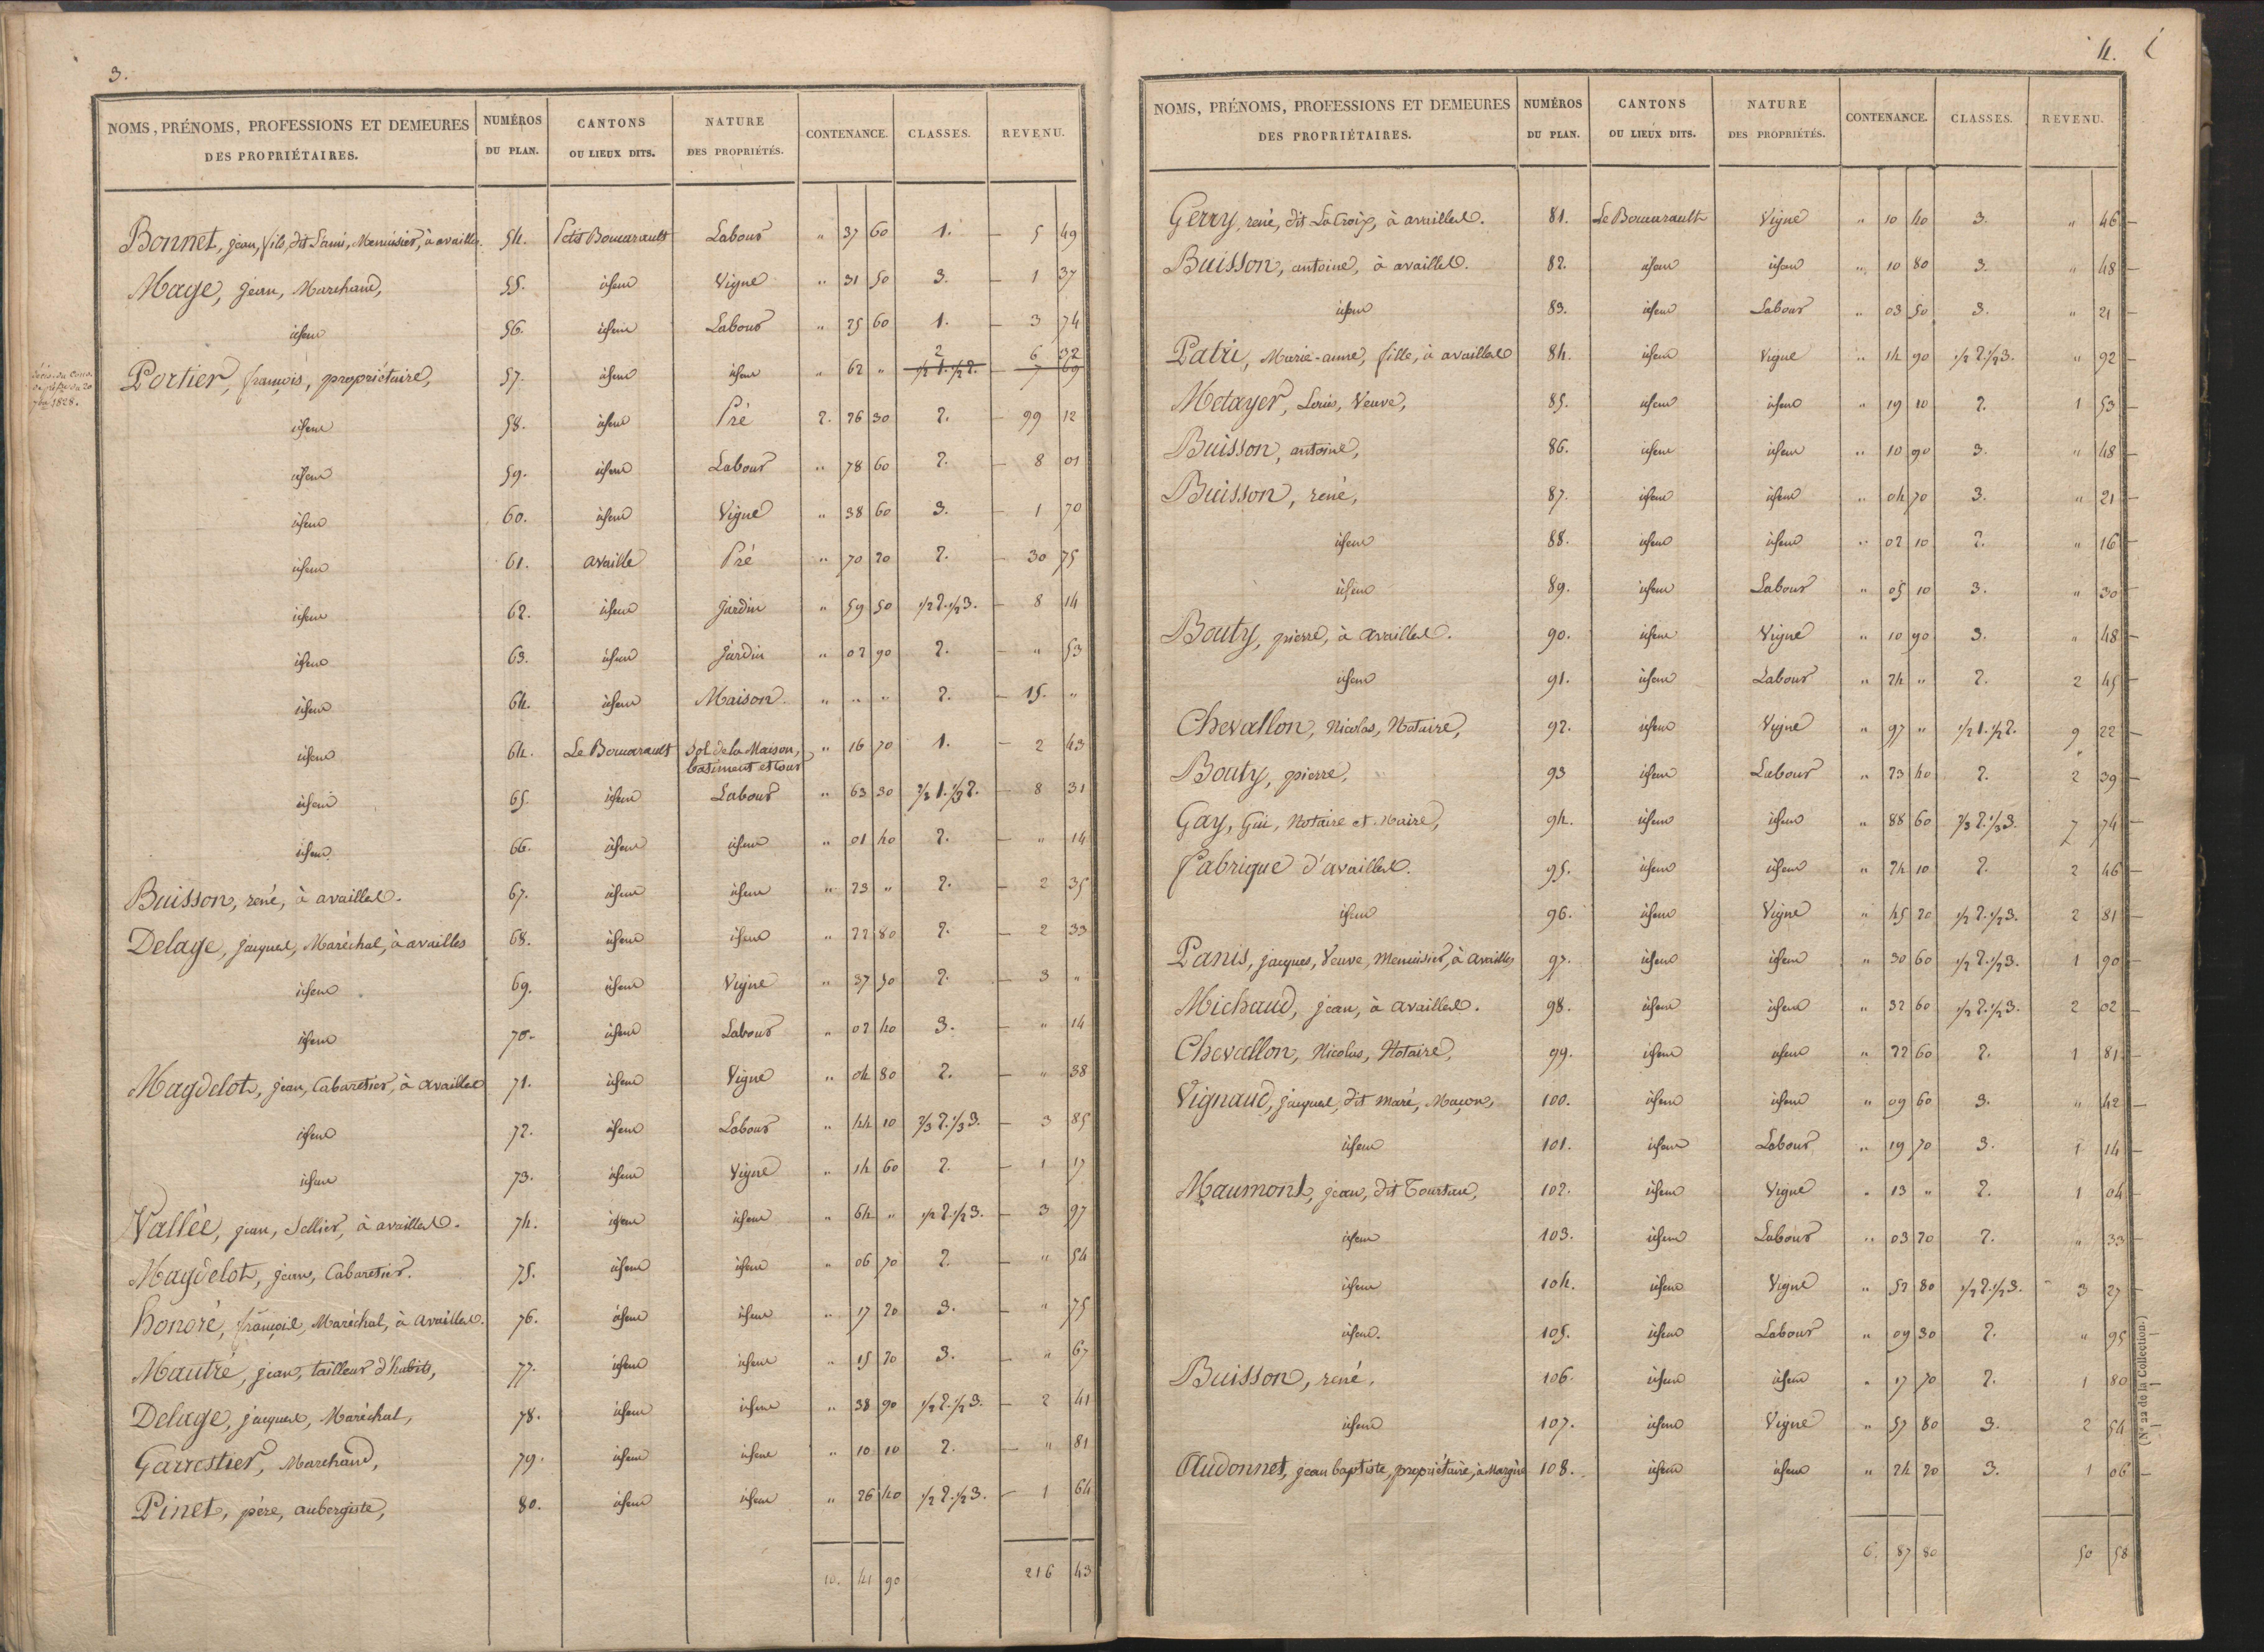 3.
NOMS, PRÉNOMS, PROFESSIONS ET DEMEURES DES PROPRIÉTAIRES. NUMÉROS DU PLAN. CANTONS OU LIEUX DITS. NATURE DES PROPRIÉTÉS. CONTENANCE. CLASSES. REVENU.
Bonnet, jean, fils, dit Sami, Menuisier, à availles. 54. Petit Bouuarault Labour " 37 60 1. — 5 49
Mage, Jean, Marchand, 55. idem Vigne " 31 50 3. — 1 37
idem 56. idem Labour " 25 60 1. — 3 74
2 6 32
Portier, françois, propriétaire, 57. idem idem " 62 " 1/2 1. 1/2 2. 7 69
1828.
idem 58. idem Pré 2. 26 30 2. — 99 12
idem 59. idem Labour " 78 60 2. — 8 01
idem 60. idem Vigne " 38 60 3. — 1 70
idem 61. availle Pré " 70 20 2. — 30 75
idem 62. idem Jardin " 59 50 1/2 2. 1/2 3. — 8 14
idem 63. idem Jardin " 02 90 2. — " 53
idem 64. idem Maison " " " 2. — 15. "
idem 64. Le Bouuarault Sol de la Maison, batiment et Cour " 16 70 1. — 2 43
idem 65. idem Labour " 63 30 2/3 1. 1/3 2. — 8 31
idem 66. idem idem " 01 40 2. — " 14
Buisson, rené, à availles. 67. idem idem " 23 " 2. — 2 35
Delage, jacques, Maréchal, à availles 68. idem idem " 22 80 2. — 2 33
idem 69. idem Vigne " 37 50 2. — 3 "
idem 70. idem Labour " 02 40 3. — " 14
Magdelot, jean, Cabaretier, à availles 71. idem Vigne " 04 80 2. — " 38
idem 72. idem Labour " 44 10 2/3 2. 1/3 3. — 3 85
idem 73. idem Vigne " 14 60 2. — 1 17
Vallée, jean, Sellier, à availles. 74. idem idem " 64 " 1/2 2. 1/2 3. — 3 97
Magdelot, jean, Cabaretier. 75. idem idem " 06 70 2. — " 54
honoré, françois, Maréchal, à availles. 76. idem idem " 17 20 3. — " 75
Mautré, jean, tailleur d'habits, 77. idem idem " 15 20 3. — " 67
Delage, jacques, Maréchal, 78. idem idem " 38 90 1/2 2. 1/2 3. — 2 41
Garrestier, Marchand, 79. idem idem " 10 10 2. — " 81
Pinet, père, aubergiste, 80. idem idem " 26 40 1/2 2. 1/2 3. — 1 64
10. 41 90 216 43
4.
NOMS, PRÉNOMS, PROFESSIONS ET DEMEURES DES PROPRIÉTAIRES. NUMÉROS DU PLAN. CANTONS OU LIEUX DITS. NATURE DES PROPRIÉTÉS. CONTENANCE. CLASSES. REVENU.
Gerry, rené, dit LaCroix, à availles. 81. Le Bouuarault Vigne " 10 40 3. " 46 —
Buisson, antoine, à availles. 82. idem idem " 10 80 3. " 48 —
idem 83. idem Labour " 03 50 3. " 21 —
Patri, Marie-anne, fille, à availles 84. idem Vigne " 14 90 1/2 2. 1/2 3. " 92 —
Metayer, Louis, Veuve, 85. idem idem " 19 10 2. 1 53 —
Buisson, antoine, 86. idem idem " 10 90 3. " 48 —
Buisson, rené, 87. idem idem " 04 70 3. " 21 —
idem 88. idem idem " 02 10 2. " 16 —
idem 89. idem Labour " 05 10 3. " 30 —
Bouty, pierre, à availles. 90. idem Vigne " 10 90 3. " 48 —
idem 91. idem Labour " 24 " 2. 2 45 —
Chevallon, Nicolas, Notaire, 92. idem Vigne " 97 " 1/2 1. 1/2 2. 9 22 —
Bouty, pierre, 93 idem Labour " 23 40 2. 2 39 —
Gay, Gui, Notaire et Maire, 94. idem idem " 88 60 2/3 2. 1/3 3. 7 74 —
fabrique d'availles. 95. idem idem " 24 10 2. 2 46 —
idem 96. idem Vigne " 45 20 1/2 2. 1/2 3. 2 81 —
Panis, jacques, Veuve, Menuisier, à availles 97. idem idem " 30 60 1/2 2. 1/2 3. 1 90 —
Michaud, jean, à availles. 98. idem idem " 32 60 1/2 2. 1/2 3. 2 02 —
Chevallon, Nicolas, Notaire, 99. idem idem " 22 60 2. 1 81 —
Vignaud, jacques, dit maré, Maçon, 100. idem idem " 09 60 3. " 42 —
idem 101. idem Labour " 19 70 3. 1 14 —
Maumont, jean, dit Tourtau, 102. idem Vigne " 13 " 2. 1 04 —
idem 103. idem Labour " 03 20 2. " 33 —
idem 104. idem Vigne " 52 80 1/2 2. 1/2 3. 3 27 —
idem. 105. idem Labour " 09 30 2. " 95 —
Buisson, rené. 106. idem idem " 17 70 2. 1 80 —
idem 107. idem Vigne " 57 80 3. 2 54 —
Audonnet, jean baptiste, propriétaire, à Margire 108. idem idem " 24 20 3. 1 06 —
6. 87 80 50 58
(N.° 22 de la Collection.)